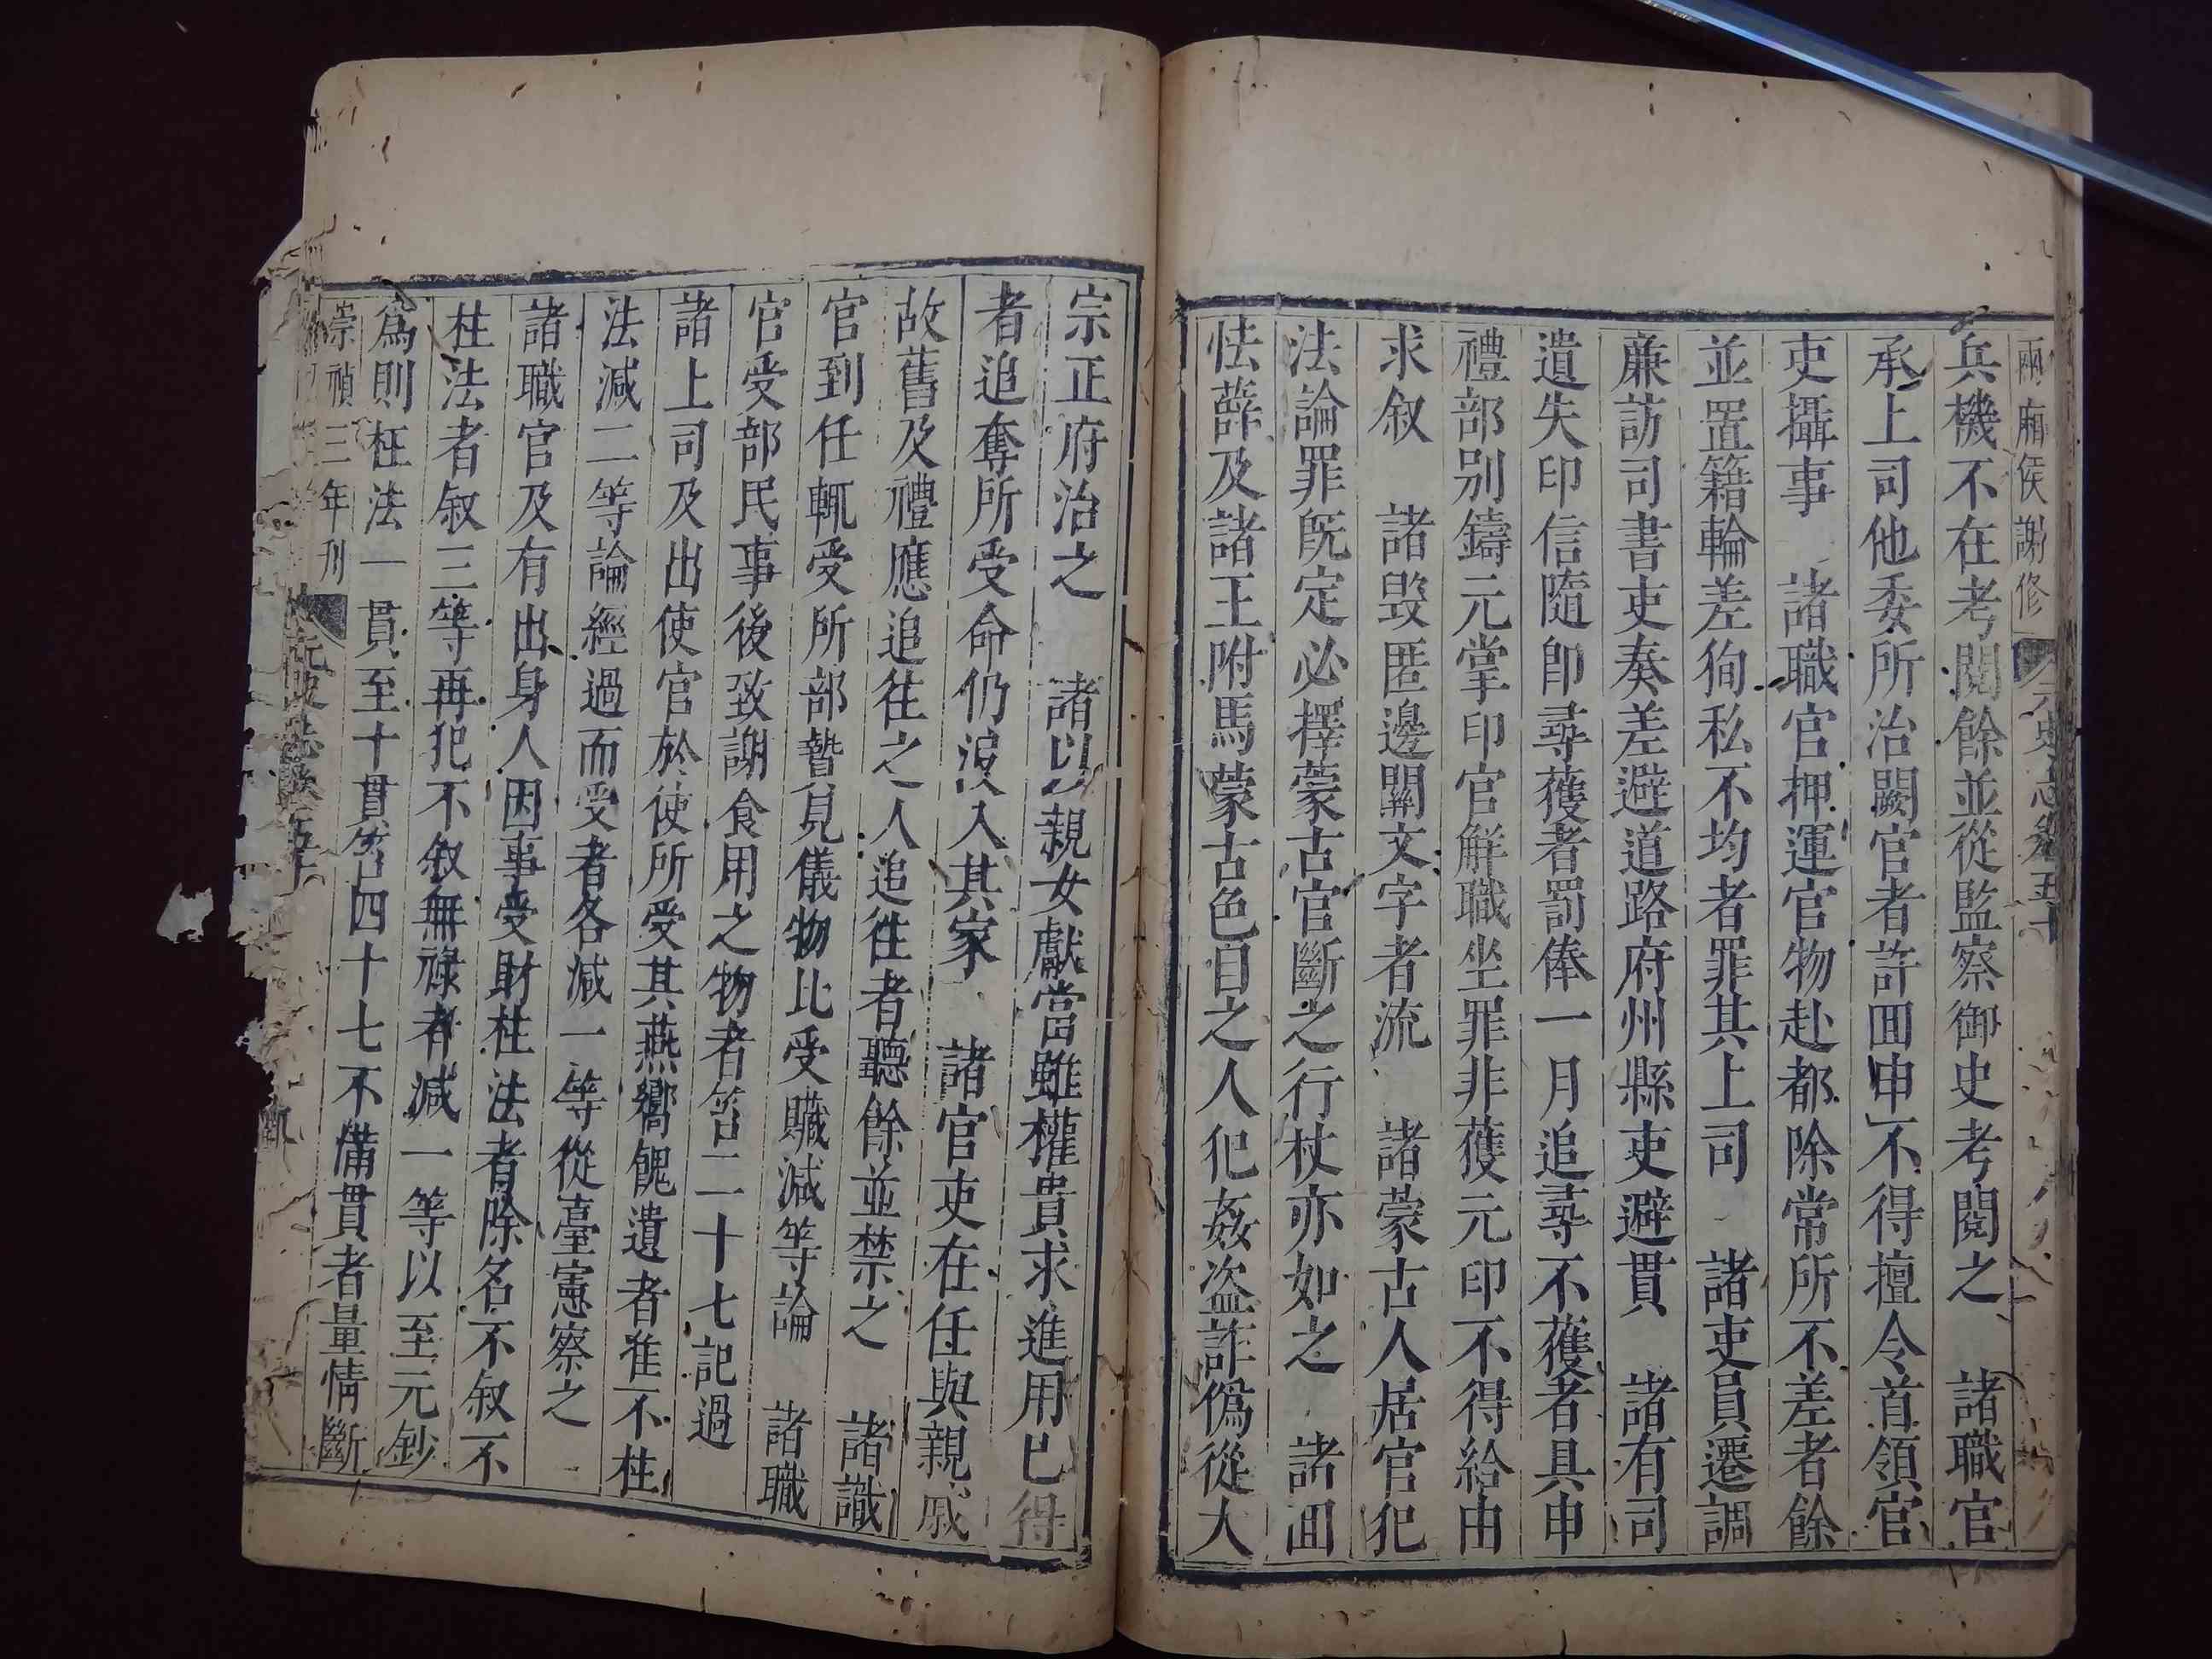 兩廂侯謝修
元史志卷五十
兵機不在考閱餘並從監察御史考閱之　諸職官
承上司他委所治闕官者許囬申不得擅令首領官
吏攝事　諸職官押運官物赴都除常所不差者餘
並置籍輪差狥私不均者罪其上司　諸吏員遷調
廉訪司書吏奏差避道路府州縣吏避貫　諸有司
遺失印信隨卽尋獲者罰俸一月追尋不獲者具申
禮部别鑄元掌印官解職坐罪非獲元印不得給由
求叙　諸毁匿邊關文字者流　諸蒙古人居官犯
法論罪旣定必擇蒙古官斷之行杖亦如之　諸囬
怯薛及諸王附馬蒙古色目之人犯姦盜詐僞從大
宗正府治之　諸以親女獻當雖權貴求進用巳得
者追奪所受命仍没入其家　諸官吏在任與親戚
故舊及禮應追往之人追往者聽餘並禁之　諸職
官到任輒受所部贄見儀物比受贓減等論　諸職
官受部民事後致謝食用之物者笞二十七記過
諸上司及出使官於使所受其燕饗餽遺者准不枉
法減二等論經過而受者各減一等從臺憲察之
諸職官及有出身人因事受財枉法者除名不叙不
枉法者叙三等再犯不叙無禄者減一等以至元鈔
爲則枉法一貫至十貫笞四十七不備貫者量情斷
崇禎三年刊